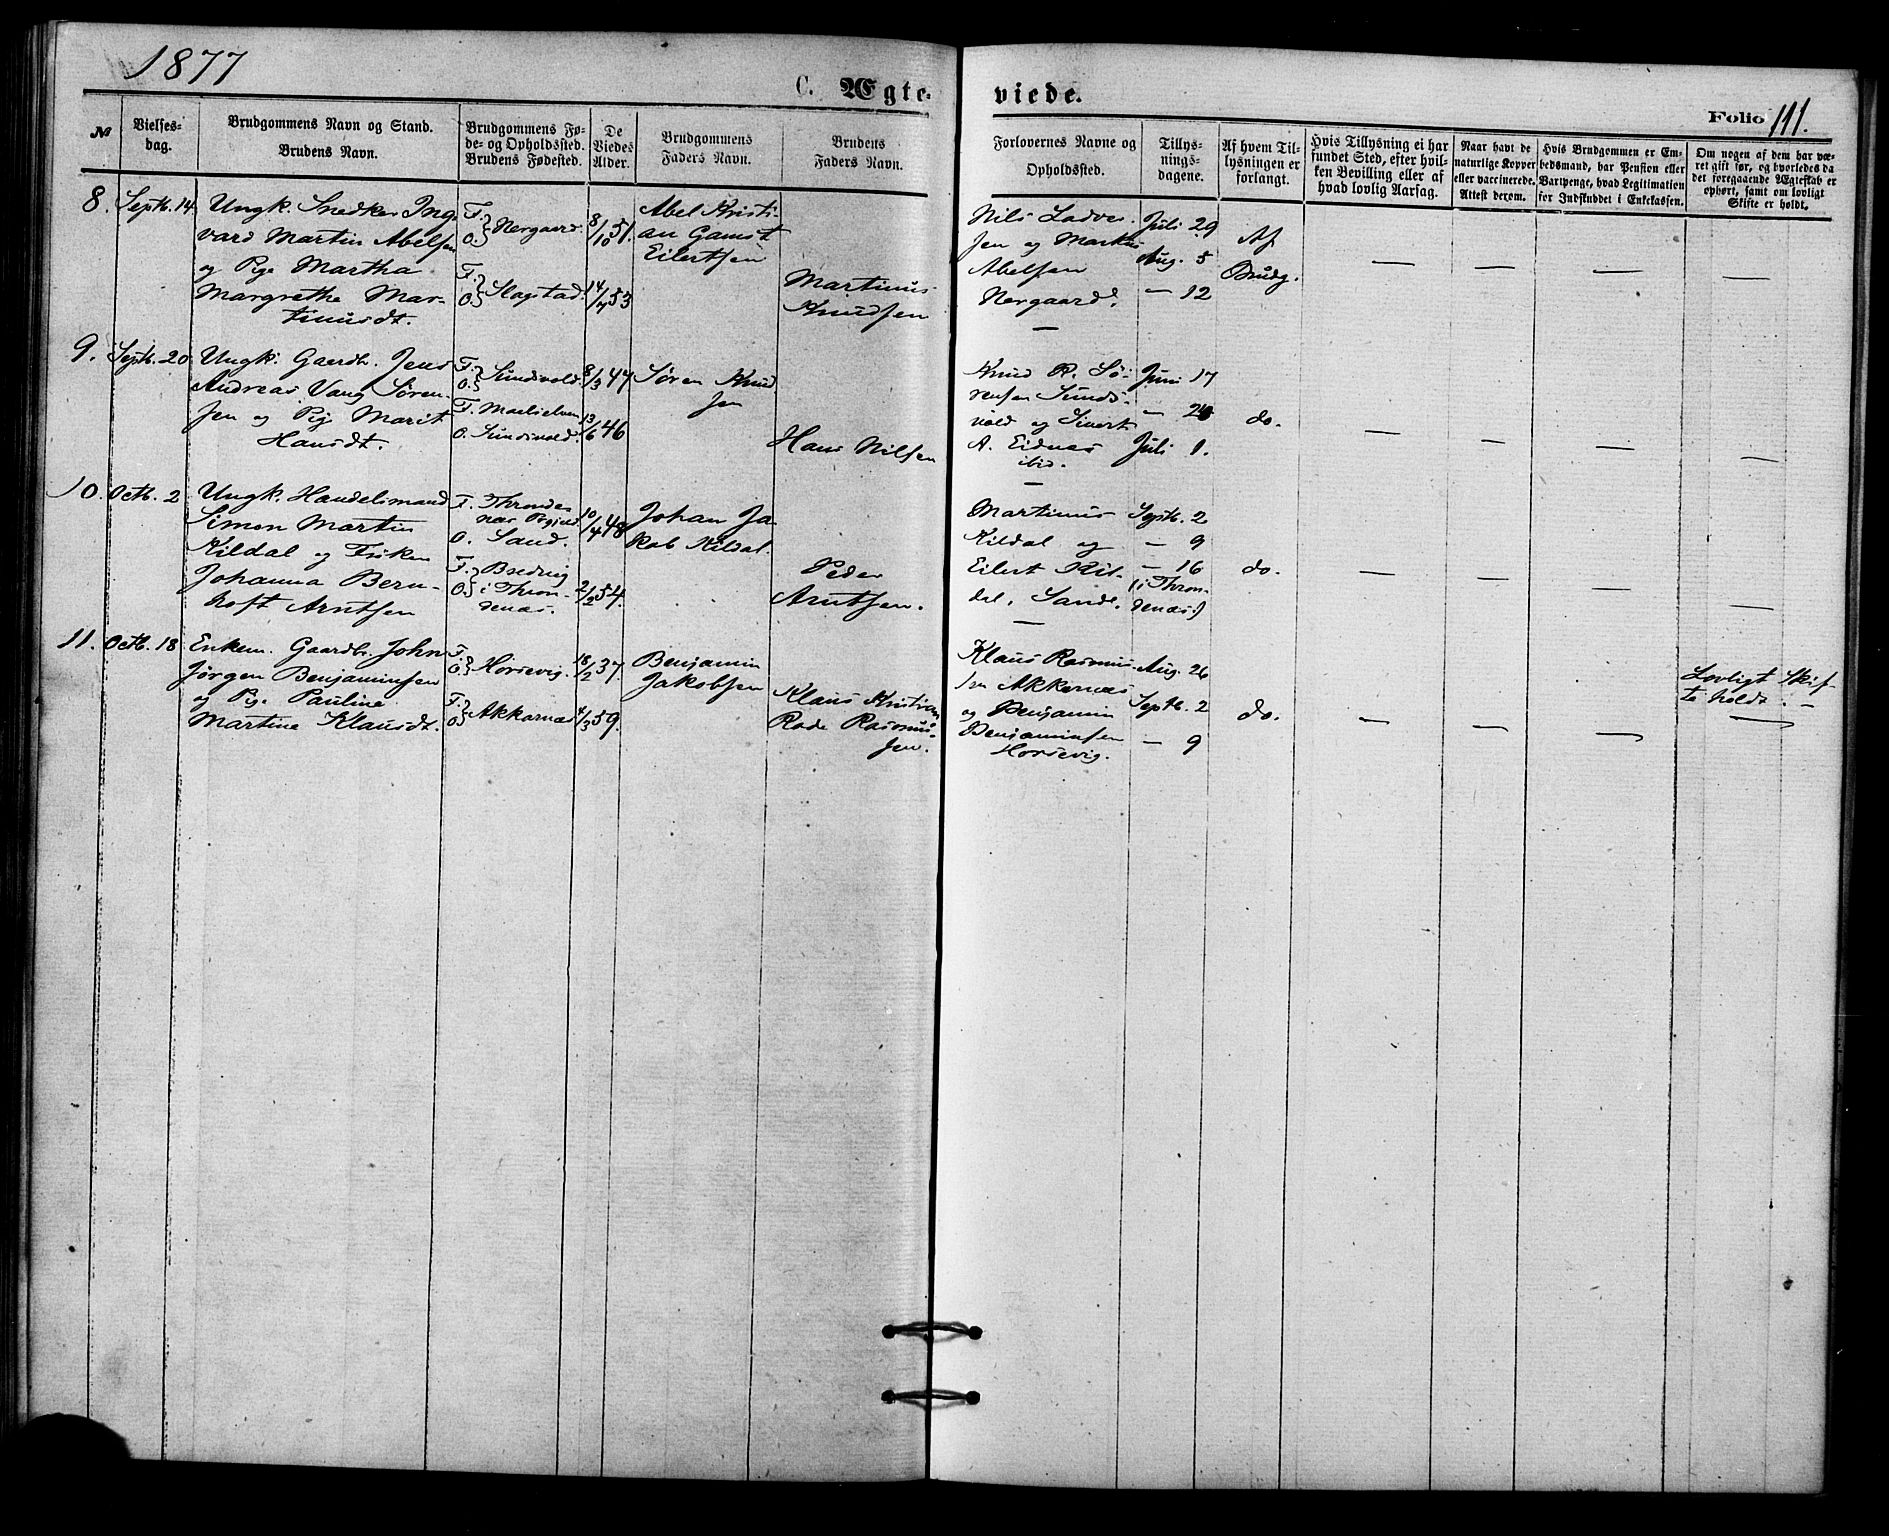 1877
C. Ægte-
viede.
Folio 111.
№
Vielses-
dag.
Brudgommens Navn og Stand.
Brudens Navn.
Brudgommens Fø-
de- og Opholdssted.
Brudens Fødested.
De
Viedes
Alder.
Brudgommens
Faders Navn.
Brudens
Faders Navn.
Forlovernes Navne og
Opholdssted.
Tillys-
nings-
dagene.
Af hvem Til-
lysningen er
forlangt.
Hvis Tillysning ei har
fundet Sted, efter hvil-
ken Bevilling eller af
hvad lovlig Aarsag.
Naar havt de
naturlige Kopper
eller vaccinerede.
Attest derom.
Hvis Brudgommen er Em-
bedsmand, har Pension eller
Vartpenge, hvad Legitimation
for Indskuddet i Enkekassen.
Om nogen af dem har væ-
ret gift før, og hvorledes da
det foregaaende Ægteskab er
ophørt, samt om lovligt
Skifte er holdt.
8. Septb. 14
Ungk. Snedker Ing-
vard Martin Abelsen
og Pige Martha
Margrethe Mar-
tinusdt.
F.
O. } Nergaard
F.
O. } Slagstad
8/10 51.
14/7 53
Abel Kristi-
an Gamst
Eilertsen
Martinus
Knudsen
Nils Ludv-
sen og Markus
Abelsen
Nergaard.
—
Juli 29
Aug. 5
— 12
Af
Brudg.
— — — —
9. Septb. 20
Ungk. Gaardb. Jens
Andreas Vang Søren-
sen og Pige Marit
Hansdt.
F.
O. } Sundsvold
F. Maelselven
O. Sundsvold.
8/3 47
13/6 46
Søren Knud-
sen
Hans Nilsen
Knud R. Sø-
rensen Sunds-
vold og Sivert
A. Eidnæs
ibid.
—
Juni 17
— 24
Juli 1.
do.
— — — —
10. Octb. 2
Ungk. Handelsmand
Simon Martin
Kildal og Frøken
Johanna Bern-
hoft Arntsen
F. Thronde-
næs Pgjeld
O. Sand.
F.
O. } Bredvig
i Thron-
denæs.
10/4 48
2/2 54.
Johan Ja-
kob Kildal.
Peder
Arntsen.
Martinus
Kildal og
Eilert Kil-
dal, Sand.
—
Septb. 2
— 9
— 16
(i Thron-
denæs)
do.
— — — —
11. Octb. 18
Enkem. Gaardb. John
Jørgen Benjaminsen
og Pige Pauline
Martine Klausdt.
F.
O. } Horsevig.
F.
O. } Akkarnæs
18/2 37.
4/3 59.
Benjamin
Jakobsen
Klaus Kristian
Rode Rasmus-
sen.
Klaus Rasmus-
sen Akkernæs
og Benjamin
Benjaminsen
Horsevig.
Aug. 26
Septb. 2
— 9
do.
— — —
Lovligt Skif-
te holdt. —
—